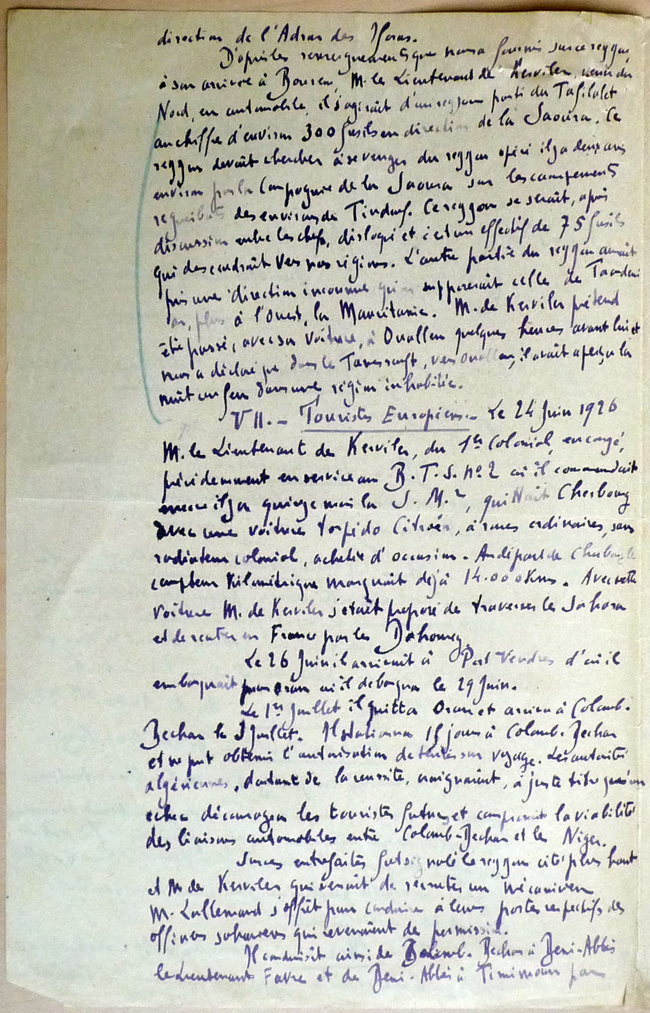 direction de l'Adrar des Iforas.
D'après les renseignements que nous a fournis sur ce rezzou,
à son arrivée à Bourem, M. le Lieutenant de Kerviler, venu du
Nord, en automobile, il s'agirait d'un rezzou parti du Tafilalet
au chiffre d'environ 300 fusils en direction de la Saoura. Ce
rezzou devait chercher à se venger du rezzou opéré il y a deux ans
environ par la Compagnie de la Saoura sur les campements
regueibats des environs de Tindouf. Ce rezzou se serait, après
discussion entre les chefs, disloqué et c'est un effectif de 75 fusils
qui descendrait vers nos régions. L'autre partie du rezzou aurait
pris une direction inconnue qu'on supposerait celle de Taodeni
ou, plus à l'Ouest, la Mauritanie. M. de Kerviler prétend
être passé, avec sa voiture, à Ouallen quelques heures avant lui et
nous a déclaré que dans le Tanesrouft, vers Ouallen, il avait aperçu la
nuit un feu dans une région inhabitée.
VII.- Touristes Européens.- Le 24 Juin 1926
M. le Lieutenant de Kerviler, du 1er Colonial, en congé,
précédemment en service au B.T.S. n°2 où il commandait
encore il y a quinze mois la S.M.2, quittait Cherbourg
avec une voiture torpédo Citroën, à roues ordinaires, sans
radiateur colonial, achetée d'occasion. Au départ de Cherbourg le
compteur kilométrique marquait déjà 14.000 Kms. Avec cette
voiture M. de Kerviler s'était proposé de traverser le Sahara
et de rentrer en France par le Dahomey.
Le 26 Juin il arrivait à Port Vendres d'où il
embarquait pour Oran où il débarqua le 29 Juin.
Le 1er Juillet il quitta Oran et arriva à Colomb-
Bechar le 3 Juillet. Il stationna 15 jours à Colomb-Bechar
et ne put obtenir l'autorisation de tenter son voyage. Les autorités
algériennes, doutant de la réussite, craignaient, à juste titre qu'un
échec décourageât les touristes futurs et compromît la viabilité
des liaisons automobiles entre Colomb-Bechar et le Niger.
Sur ces entrefaites fut signalé le rezzou cité plus haut
et M. de Kerviler qui venait de recruter un mécanicien
M. Lallemand s'offrit pour conduire à leurs postes respectifs des
officiers sahariens qui revenaient de permission.
Il conduisit ainsi de Colomb-Bechar à Beni-Abbès
le Lieutenant Favre et de Beni-Abbès à Timimoun par